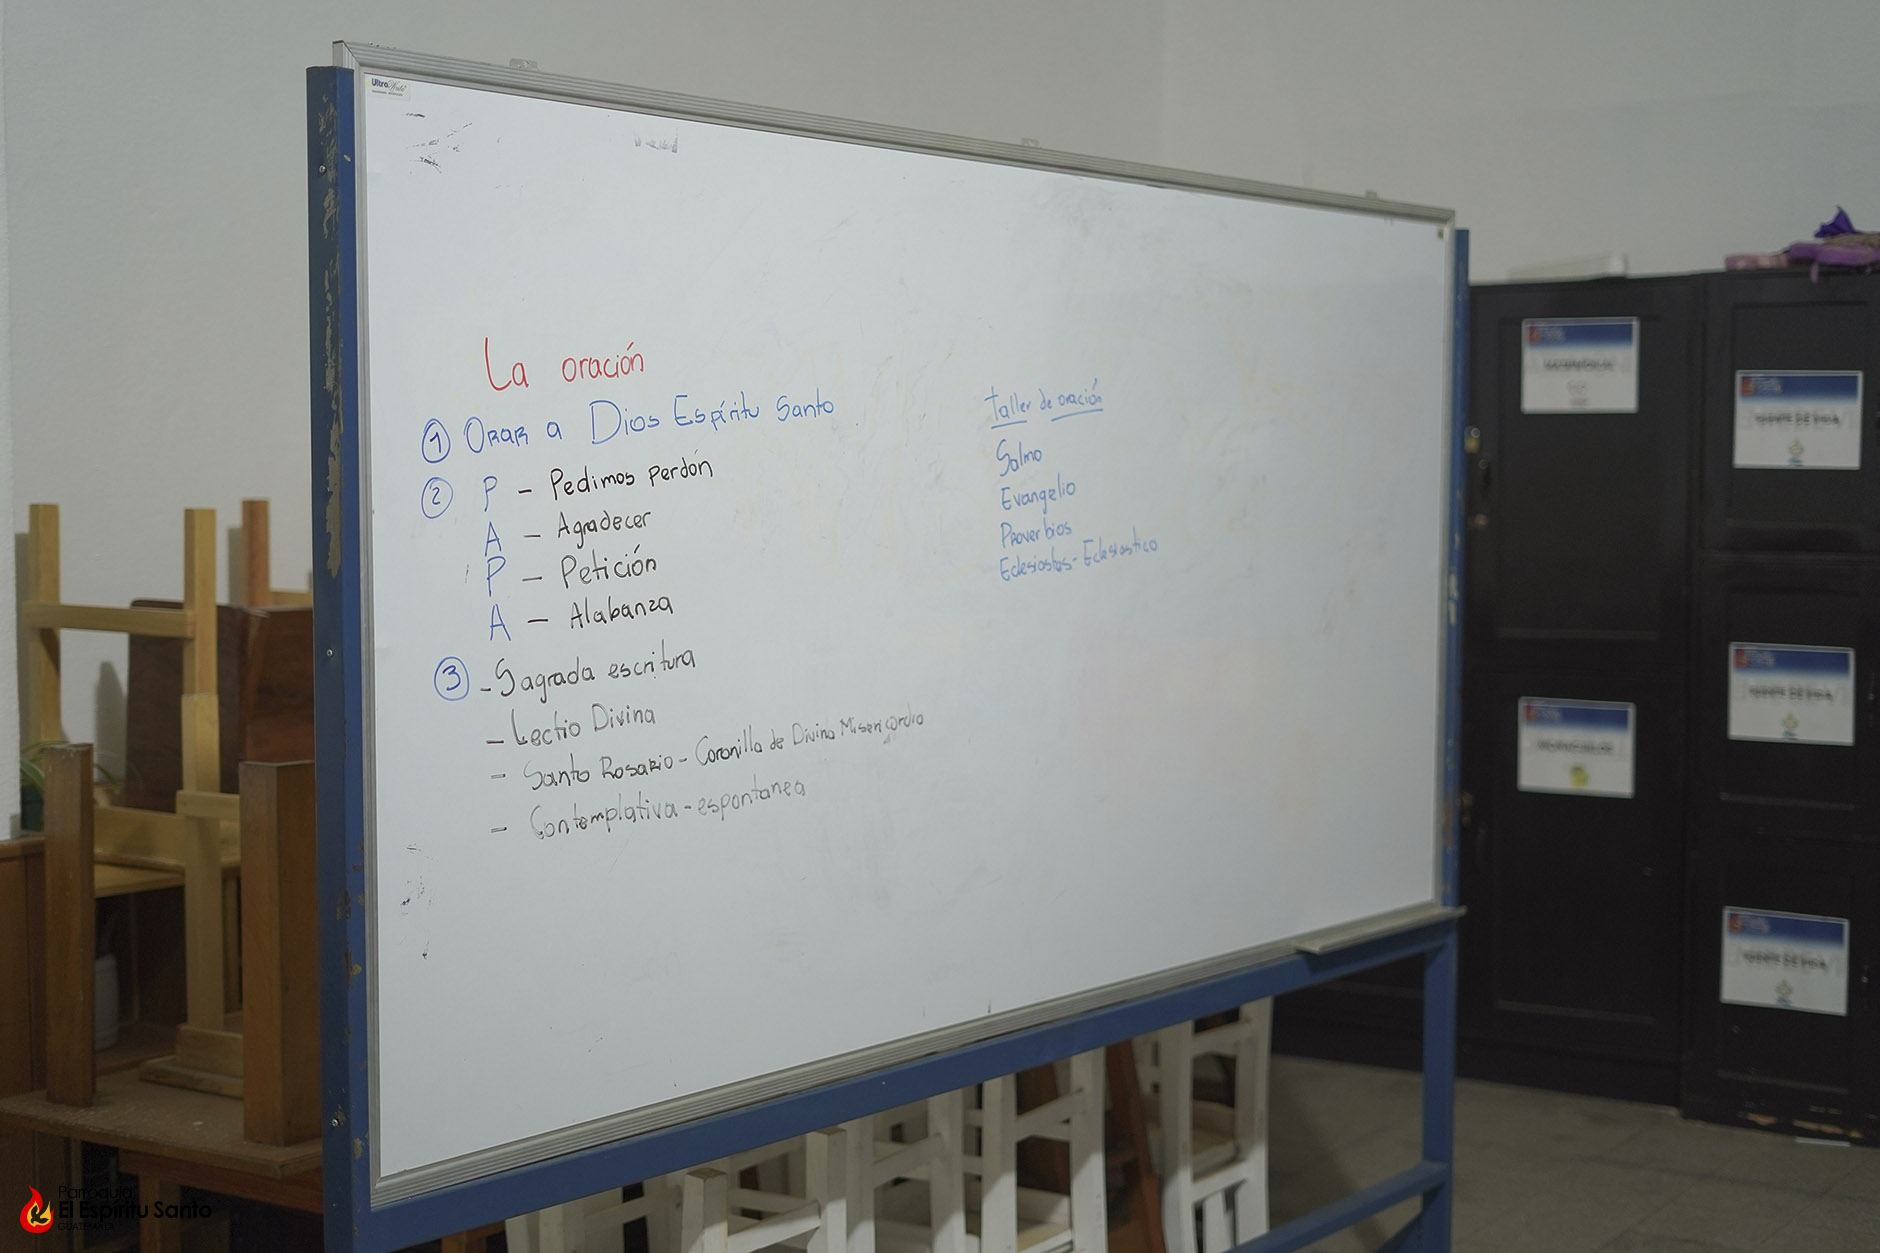 UltraWite
La oración
① Orar a Dios Espíritu Santo
② P - Pedimos perdón
A - Agradecer
P - Petición
A - Alabanza
③ - Sagrada escritura
- Lectio Divina
- Santo Rosario - Coronilla de Divina Misericordia
- Contemplativa - espontanea
taller de oración
Salmo
Evangelio
Proverbios
Eclesiastes - Eclesiastico
Parroquia
El Espíritu Santo
GUATEMALA